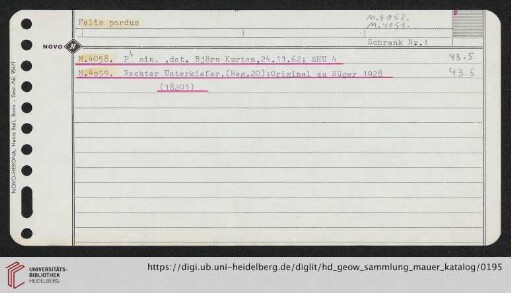 Felis pardus
M.4058.
M.4059.
Schrank Nr.:
NOVO
M.4058. P4 sin. ,det. Björn Kurten,24.11.62; SHU 4 43.5
M.4059. Rechter Unterkiefer.(Reg.20);Original zu Rüger 1928 43.5
(18201)
UNIVERSITÄTS-
BIBLIOTHEK
HEIDELBERG
https://digi.ub.uni-heidelberg.de/diglit/hd_geow_sammlung_mauer_katalog/0195